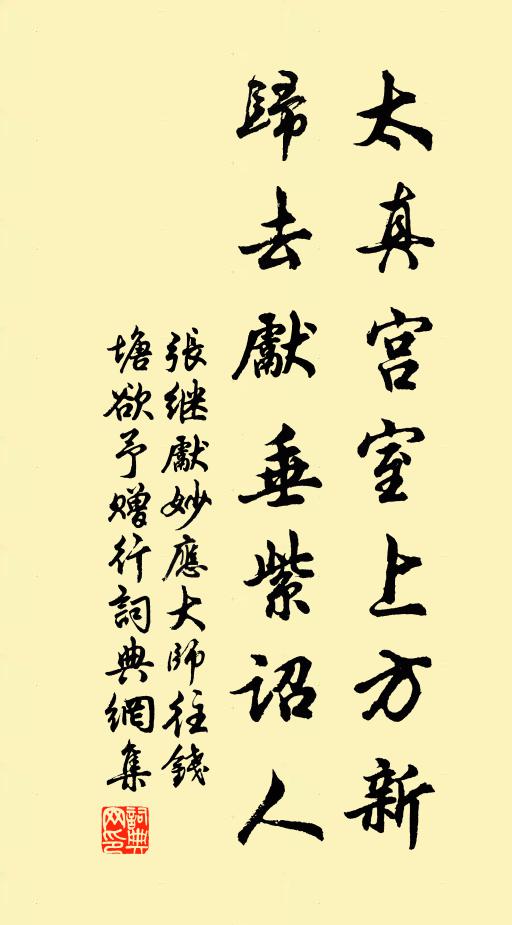 太真宫室上方新
歸去獻垂紫詔人
張继獻妙應大師往錢
塘欲予贈行詞典網集
詞典
网印